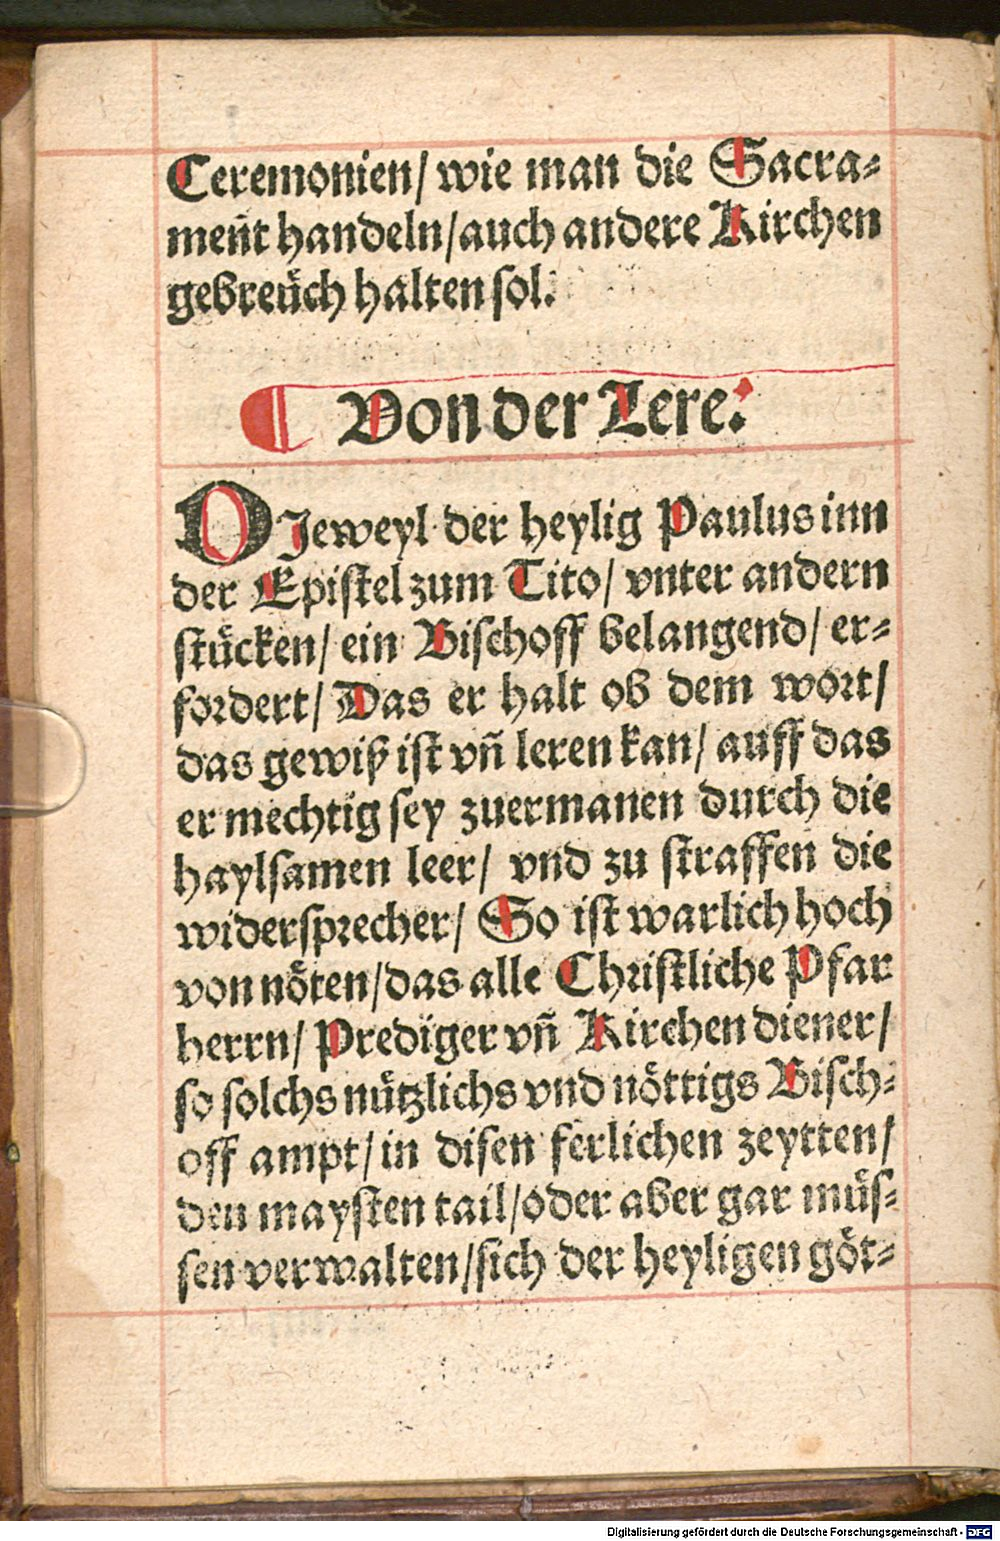 Ceremonien/ wie man die Sacra-
meñt handeln/auch andere Kirchen
gebreuͤch halten sol.
¶ Von der Lere.
DJeweyl der heylig Paulus inn
der Epistel zum Tito/ vnter andern
stuͤcken/ ein Bischoff belangend/ er-
fordert/ Das er halt ob dem wort/
das gewiß ist vñ leren kan/ auff das
er mechtig sey zuermanen durch die
haylsamen leer/ vnd zu straffen die
widersprecher/ So ist warlich hoch
von noͤten/das alle Christliche Pfar
herrn/ Prediger vñ Kirchen diener/
so solchs nuͤtzlichs vnd noͤttigs Bisch-
off ampt/in disen ferlichen zeytten/
den maysten tail/oder aber gar muͤs-
sen verwalten/sich der heyligen goͤt-
Digitalisierung gefördert durch die Deutsche Forschungsgemeinschaft - DFG